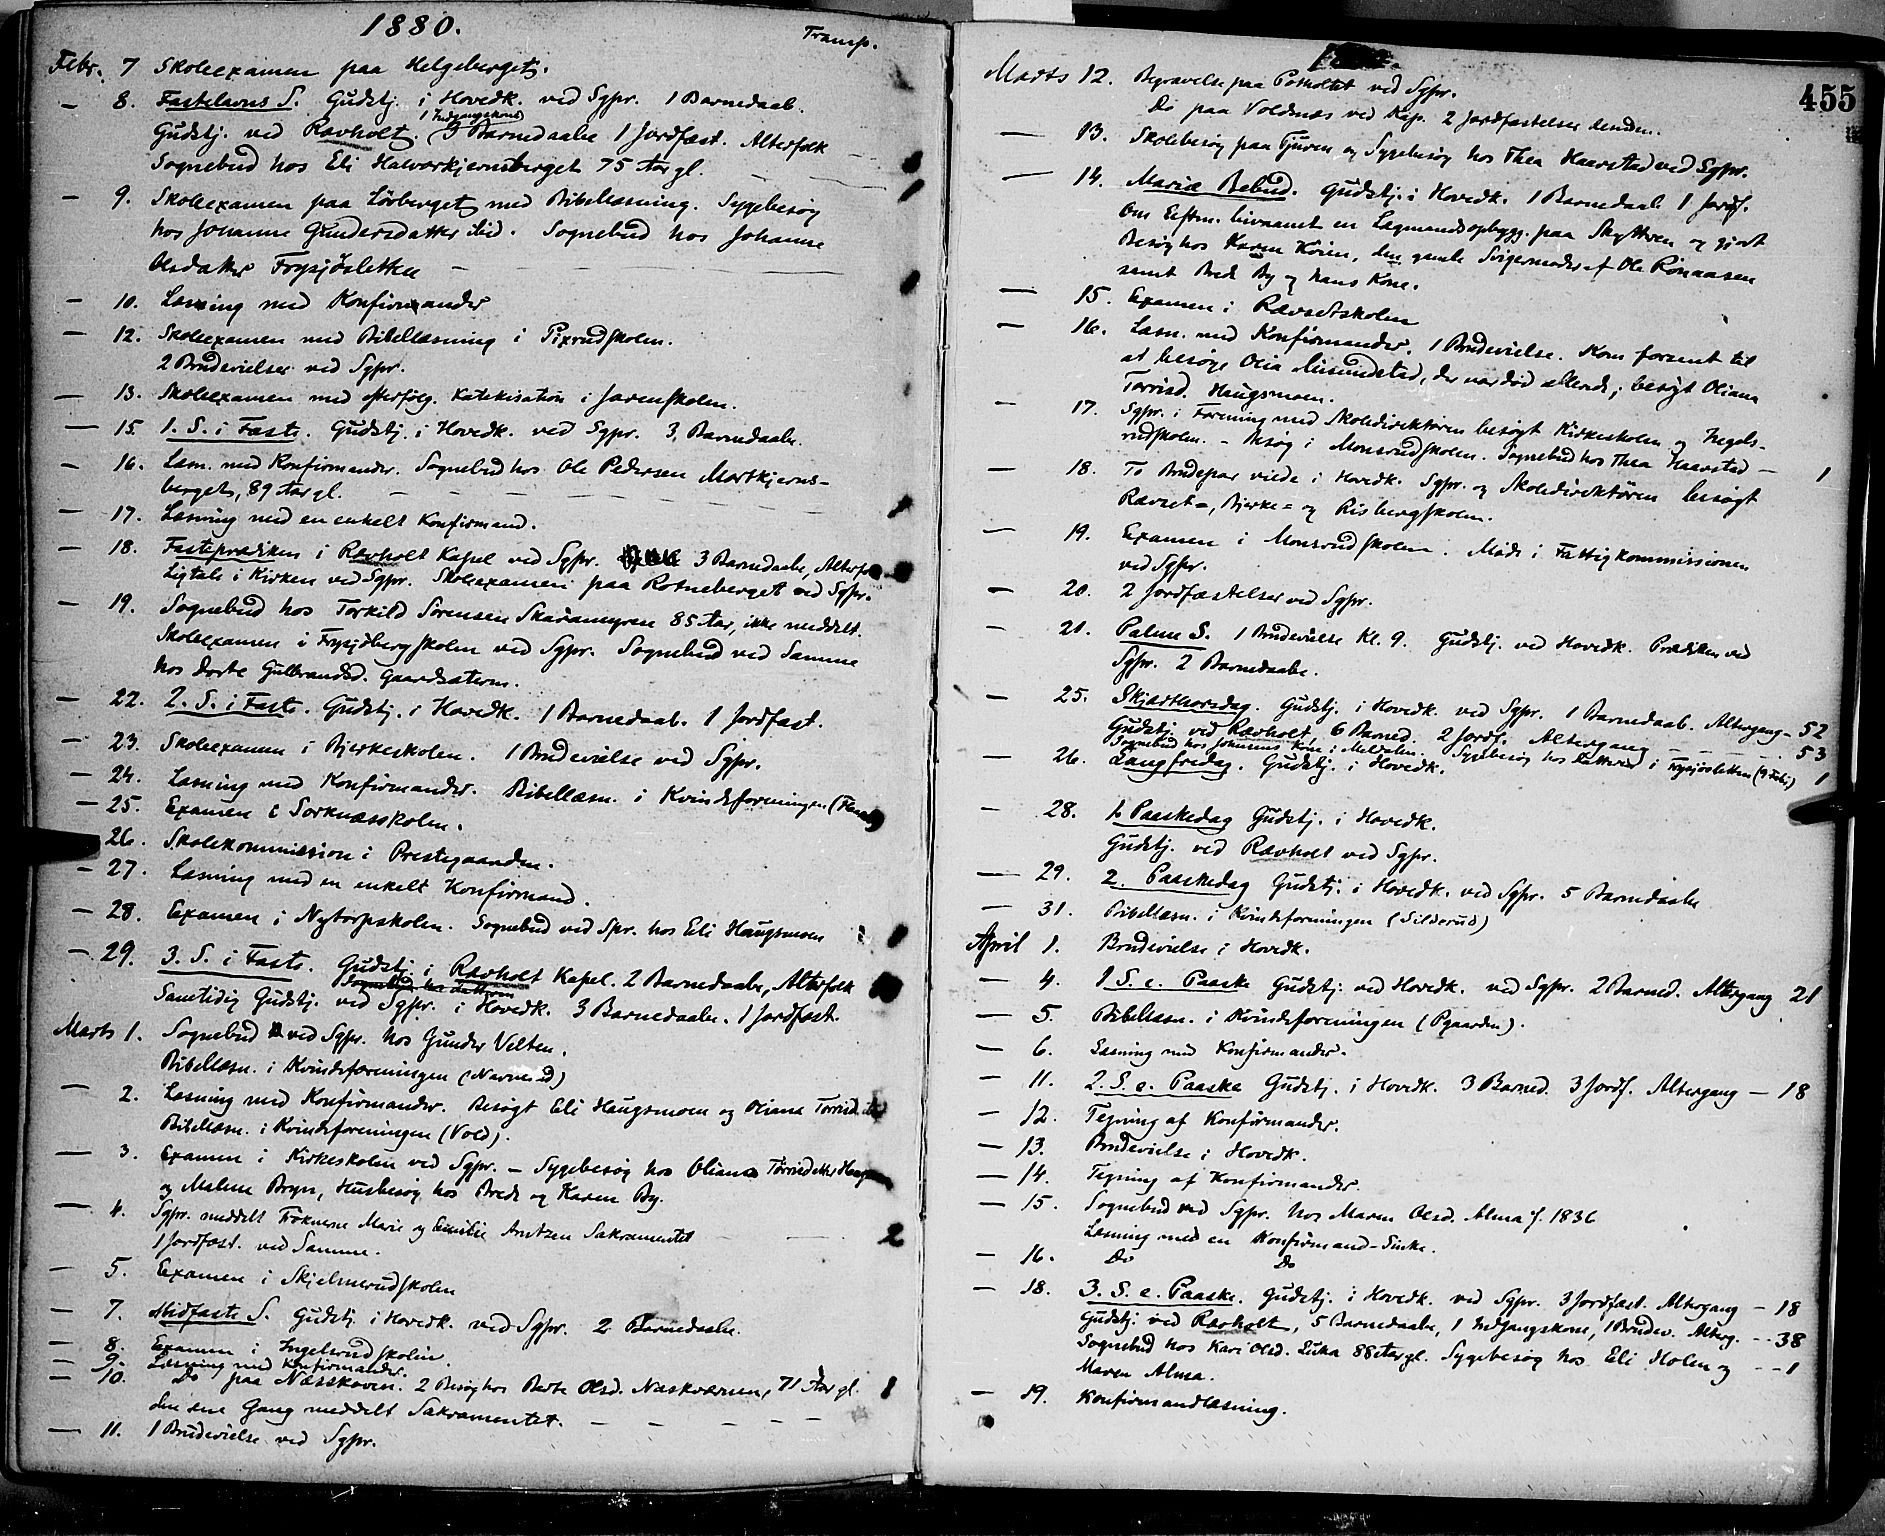 1880.
Transp.
Febr. 7 Skoleexamen paa Helgeberget.
— 8. Fastelavns S. Gudstj. i Hovedk. ved Sgpr. 1 Barnedaab.
1 Indgangskone
Gudstj. ved Ravholt. 9 Barnedaabe 1 Jordfæst. Alterfolk
Sognebud hos Eli Halvorkjernsberget 75 Aar gl.
— 9. Skoleexamen paa Lørberget med Bibellæsning. Sygebesøg
hos Johanne Gundersdatter ibid. Sognebud hos Johanne
Olsdatter Frysjøsletten
— 10. Læsning med Konfirmander
— 12. Skoleexamen med Bibellæsning i Pixrudskolen.
2 Brudevielser ved Sgpr.
— 13. Skoleexamen med efterfølg. Katekisation i Jarenskolen.
— 15. 1. S. i Faste. Gudstj. i Hovedk. ved Sgpr. 3 Barnedaabe.
— 16. Læsn. med Konfirmander. Sognebud hos Ole Pedersen Mortkjerns-
berget, 89 Aar gl.
— 17. Læsning med en enkelt Konfirmand.
— 18. Fasteprædiken i Ravholt Kapel ved Sgpr. 3 Barnedaabe, Alterf
Ligtale i Kirken ved Sgpr. Skoleexamen paa Rotneberget ved Sgpr.
— 19. Sognebud hos Torkild Sørensen Skaramyren 85 Aar, ikke meddelt.
Skoleexamen i Frysjøbergskolen ved Sgpr. Sognebud ved Samme
hos Dorte Gulbrandsd. Gaardsæteren.
— 22. 2. S. i Faste. Gudstj. i Hovedk. 1 Barnedaab. 1 Jordfæst.
— 23. Skoleexamen i Bjerkeskolen. 1 Brudevielse ved Sgpr.
— 24. Læsning med Konfirmander. Bibellæsn. i Kvindeforeningen
— 25. Examen i Sorknæsskolen.
— 26. Skolekommission i Prestegaarden.
— 27. Læsning med en enkelt Konfirmand.
— 28. Examen i Nytorpskolen. Sognebud ved Spr. hos Eli Haugsmoen
— 29. 3. S. i Faste. Gudstj. i Ravholt Kapel. 2 Barnedaabe, Alterfolk
Samtidig Gudstj. ved Sgpr. i Hovedk. 3 Barnedaabe. 1 Jordfæst.
Marts 1. Sognebud ved Sgpr. hos Gunder Velten.
Bibellæsn. i Kvindeforeningen
— 2. Læsning med Konfirmander. Besøgt Eli Haugsmoen og Oliana Torrisd. ibd
Bibellæsn. i Kvindeforeningen (Vold).
— 3. Examen i Kirkeskolen ved Sgpr. – Sygebesøg hos Oliana Torrisdatter
og Malene Bryn, Husbesøg hos Brede og Karen By.
— 4. Sgpr. meddelt Frøknerne Marie og Emilie Arntzen Sakramentet — 2
1 Jordfæst. ved Samme.
— 5. Examen i Skjelnerudskolen
— 7. Midfaste S. Gudstj. i Hovedk. ved Sgpr. 2 Barnedaabe.
— 8. Examen i Ingelsrudskolen.
— 9. Læsning med Konfirmander.
— 10. Do paa Næsskoven. 2 Besøg hos Berte Olsd. Næskværnen, 71 Aar gl. 1
den ene Gang meddelt Sakramentet.
— 11. 1 Brudevielse ved Sgpr.
455
Marts 12. Begravelse paa Potholtet ved Sgpr.
Do paa Voldnæs ved Kap. 2 Jordfæstelser dende.
— 13. Skolebesøg paa Tjuren og Sygebesøg hos Thea Haarstad ved Sgpr.
— 14. Mariæ Bebud. Gudstj. i Hovedk. 1 Barnedaab 1 Jordf.
Om Eftm. bivaanet en Lægmandsopbygg. paa Skytteren og gjort
Besøg hos Karen Køien, den gamle Svigermoder af Ole Rønaasen
samt Brede By og hans Kone.
— 15. Examen i Rævsetskolen
— 16. Læsn. med Konfirmander. 1 Brudevielse. Kom forsent til
at besøge Olia Aisundstad, der var død allerede; besøgt Oliana
Torrisd. Haugsmoen.
— 17. Sgpr. i Forening med Skoledirektøren besøgt Kirkeskolen og Ingels-
rudskolen. – Besøg i Monsrudskolen. Sognebud hos Thea Haarstad — 1
— 18. To Brudepar viede i Hovedk. Sgpr. og Skoledirektøren besøgt
Rævset=, Bjerke= og Risbergskolen.
— 19. Examen i Monsrudskolen. Møde i Fattigkommissionen
ved Sgpr.
— 20. 2 Jordfæstelser ved Sgpr.
— 21. Palme S. 1 Brudevielse Kl. 9. Gudstj. ved Hovedk. Prædiken ved
Sgpr. 2 Barnedaabe.
— 25. Skjærthorsdag. Gudstj. i Hovedk. ved Sgpr. 1 Barnedaab. Altergang – 52
Gudstj. ved Ravholt, 6 Barned. 2 Jordf. Altergang — 53
Sognebud hos Johannes' Kone i Meldalen. Sygebesøg hos Datteren i Frysjøsletten (9 Febr.) 1
— 26. Langfredag. Gudstj. i Hovedk.
— 28. 1. Paaskedag Gudstj. i Hovedk.
Gudstj. ved Ravholt ved Sgpr.
— 29. 2. Paaskedag Gudstj. i Hovedk. ved Sgpr. 5 Barnedaabe
— 31. Bibellæsn. i Kvindeforeningen (Silderud)
April 1. Brudevielse i Hovedk.
— 4. 1 S. e. Paaske Gudstj. ved Hovedk. ved Sgpr. 2 Barned. Altergang 21
— 5. Bibellæsn. i Kvindeforeningen (Pgaarden).
— 6. Læsning med Konfirmander.
— 11. 2. S. e. Paaske Gudstj. i Hovedk. 3 Barned. 3 Jordf. Altergang — 18
— 12. Tegning af Konfirmander.
— 13. Brudevielse i Hovedk.
— 14. Tegning af Konfirmander.
— 15. Sognebud ved Sgpr. hos Maren Olsd. Alma f. 1836
Læsning med en Konfirmand-Sinke.
— 16. Do Do
— 18. 3. S. e. Paaske. Gudstj. i Hovedk. ved Sgpr. 3 Jordfæst. Altergang – 18
Gudstj. ved Ravholt, 5 Barnedaabe, 1 Indgangskone, 1 Brudev. Alterg. - - 38
Sognebud hos Kari Olsd. Likka 88 Aar gl. Sygebesøg hos Eli Holen og - - 1
Maren Alma.
— 19. Konfirmandlæsning.